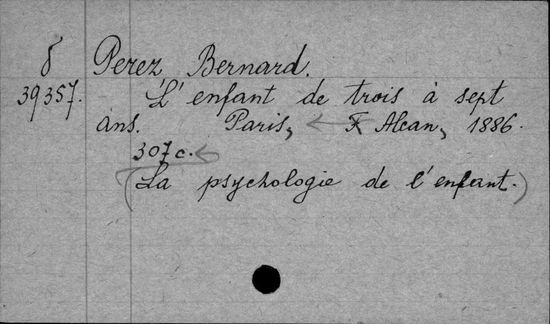 8 Perez, Bernard.
39357. L'enfant de trois à sept
ans. Paris, F. Alcan, 1886.
307c.
(La psychologie de l'enfant.)